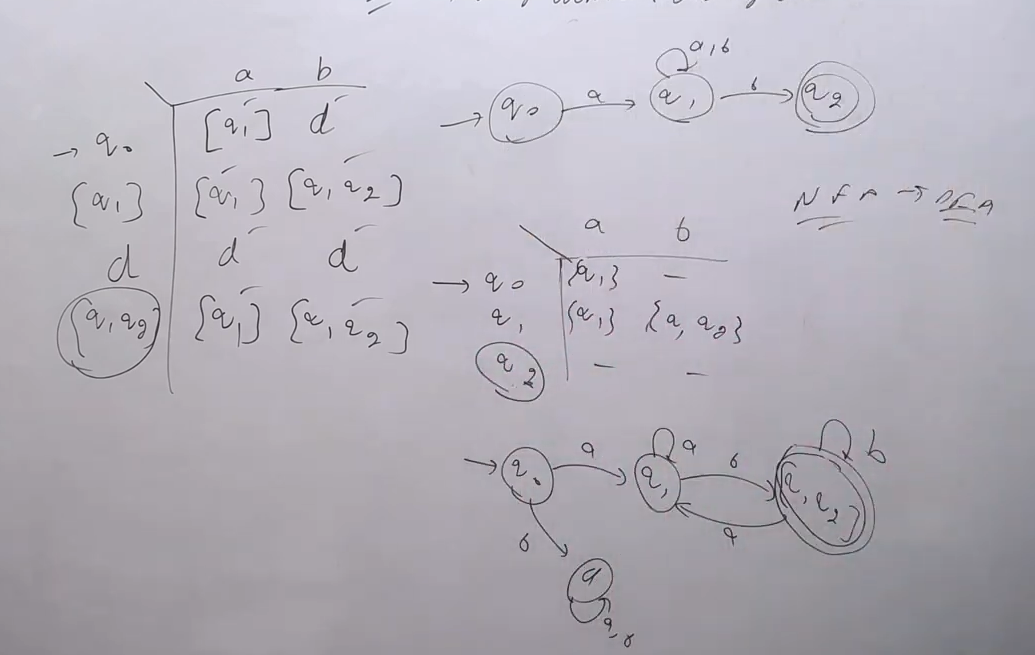 a b
→ q₀ [q₁] d
{q₁} {q₁} [q₁ q₂]
d d d
{q₁, q₂} {q₁} {q₁, q₂]
a, b
→ q₀ a q₁ b q₂
NFA → DFA
a b
→ q₀ {q₁} –
q₁ {q₁} {q₁, q₂}
q₂ – –
a b
→ q₀ a q₁ b {q₁, q₂}
a
b
d
a, b